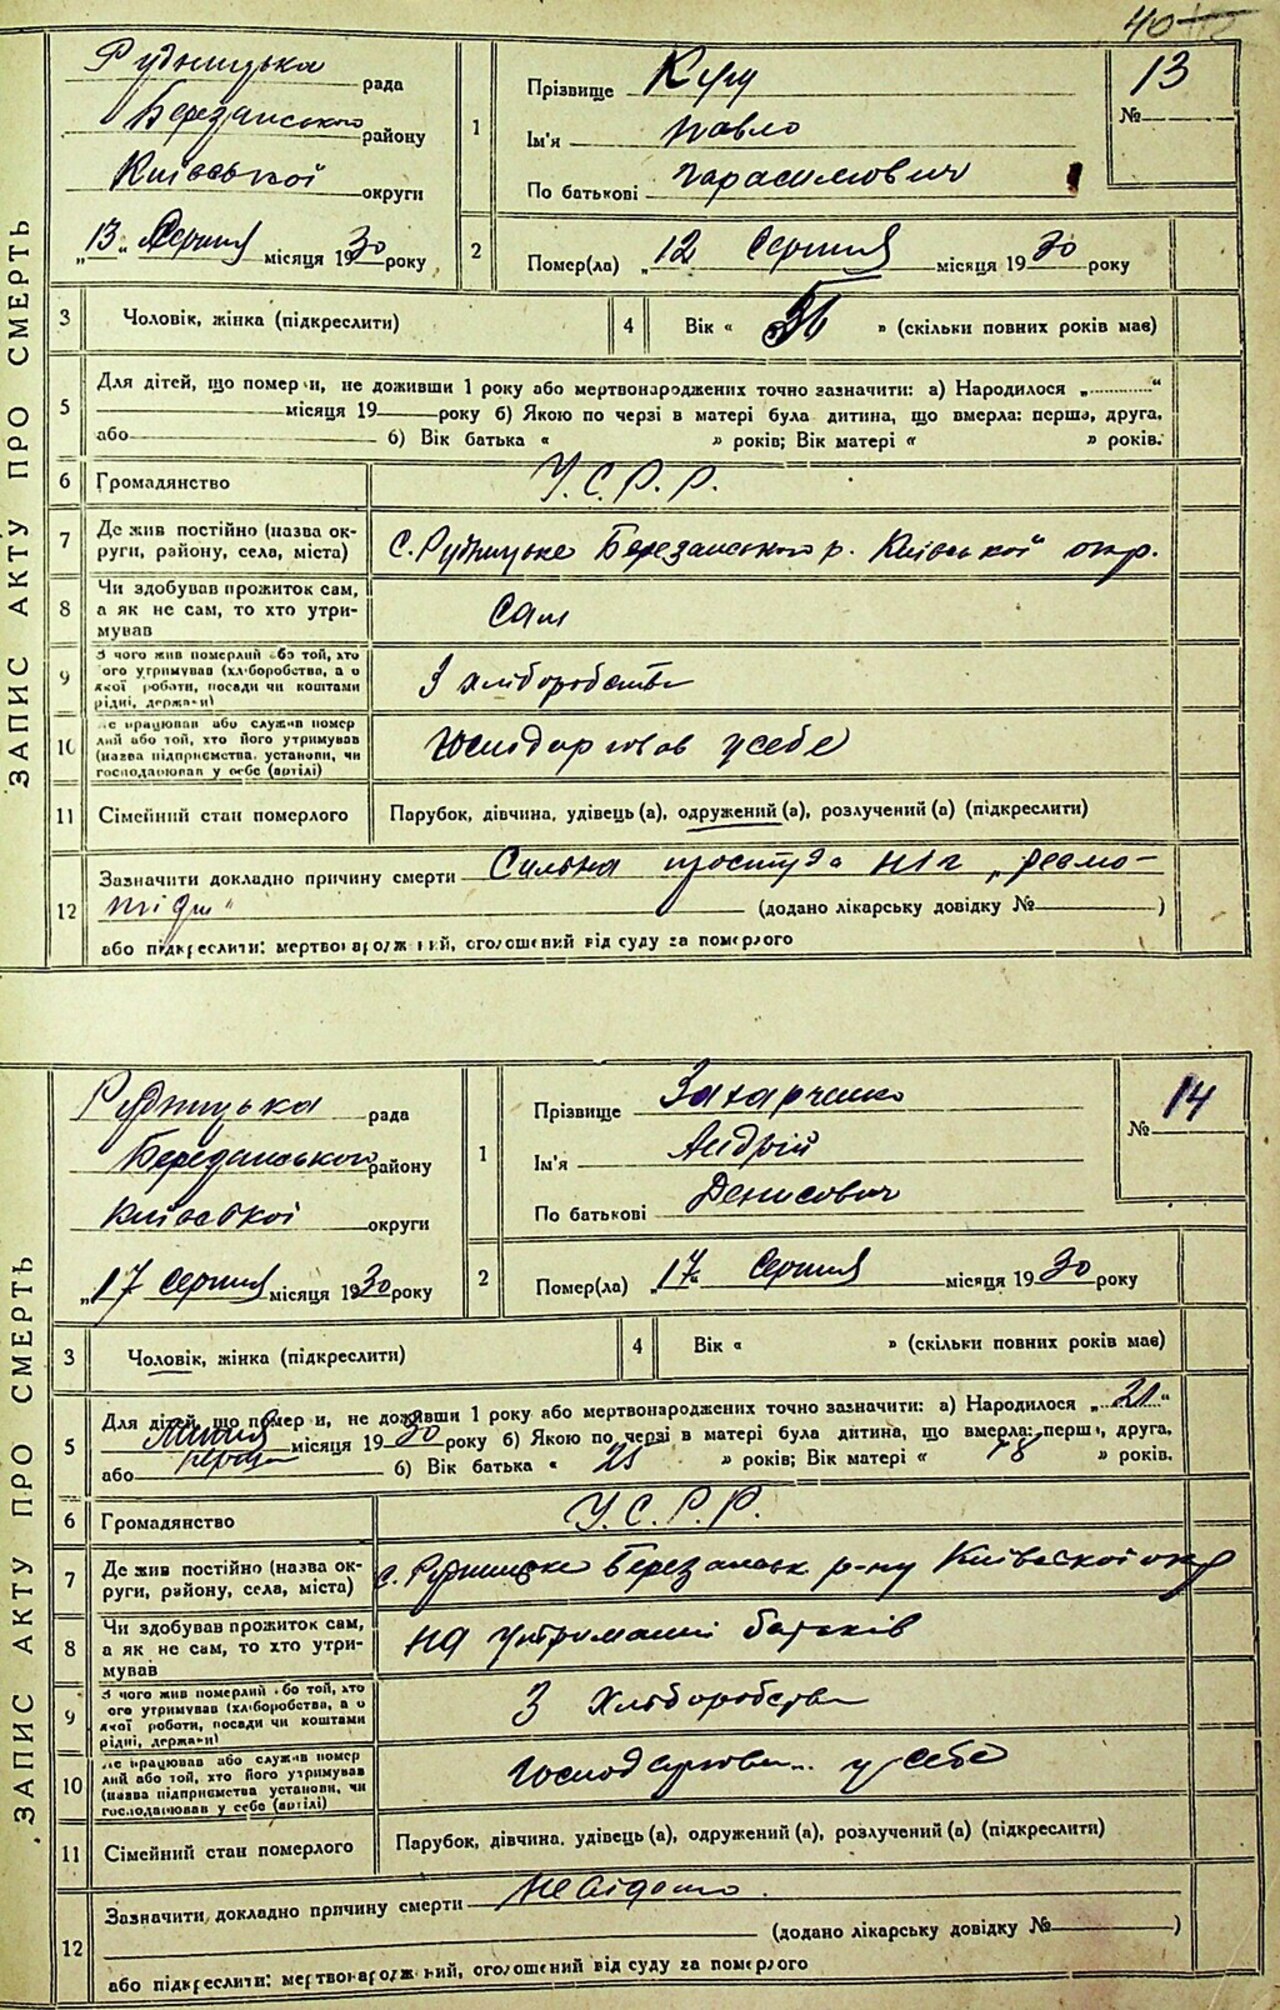 40
ЗАПИС АКТУ ПРО СМЕРТЬ
Рудницька рада
Березанського району
Київської округи
„13“ Серпня місяця 1930 року
1
Прізвище
Ім'я Павло
По батькові Гарасимович
13
№
2
Помер(ла) „12 Серпня місяця 1930 року
3 Чоловік, жінка (підкреслити)
4 Вік « » (скільки повних років має)
5 Для дітей, що померли, не доживши 1 року або мертвонароджених точно зазначити: а) Народилося „ “
місяця 19 року б) Якою по черзі в матері була дитина, що вмерла: перша, друга,
або б) Вік батька « » років; Вік матері « » років.
6 Громадянство У.С.Р.Р.
7 Де жив постійно (назва ок-
руги, району, села, міста) С. Рудницьке Березанського р. Київської окр.
8 Чи здобував прожиток сам,
а як не сам, то хто утри-
мував Сам
9 З чого жив померлий або той, хто
ого утримував (хліборобства, а о
якої роботи, посади чи коштами
рідні, держави) З хліборобства
10 Де працював або служив помер
лий або той, хто його утримував
(назва підприємства, установи, чи
господарював у себе (артілі) Господарював у себе
11 Сімейний стан померлого Парубок, дівчина, удівець (а), одружений (а), розлучений (а) (підкреслити)
12 Зазначити докладно причину смерти Сильна простуда ніг „ревмо-
тідм“ (додано лікарську довідку № )
або підкреслити: мертвонароджений, оголошений від суду за померлого
ЗАПИС АКТУ ПРО СМЕРТЬ
Рудницька рада
Березанського району
Київської округи
„17 серпня місяця 1930 року
1
Прізвище Захарченко
Ім'я Андрій
По батькові Денисович
14
№
2
Помер(ла) „17“ Серпня місяця 1930 року
3 Чоловік, жінка (підкреслити)
4 Вік « » (скільки повних років має)
5 Для дітей, що померли, не доживши 1 року або мертвонароджених точно зазначити: а) Народилося „21“
Липня місяця 1930 року б) Якою по черзі в матері була дитина, що вмерла: перша, друга,
або перша б) Вік батька « 25 » років; Вік матері « » років.
6 Громадянство У.С.Р.Р.
7 Де жив постійно (назва ок-
руги, району, села, міста) с. Рудницьке Березанськ. р-ну Київської окр
8 Чи здобував прожиток сам,
а як не сам, то хто утри-
мував на утриманні батьків
9 З чого жив померлий або той, хто
ого утримував (хліборобства, а о
якої роботи, посади чи коштами
рідні, держави) З хліборобства
10 Де працював або служив помер
лий або той, хто його утримував
(назва підприємства установи, чи
господарював у себе (артілі) у себе
11 Сімейний стан померлого Парубок, дівчина, удівець (а), одружений (а), розлучений (а) (підкреслити)
12 Зазначити докладно причину смерти Не відомо.
(додано лікарську довідку № )
або підкреслити: мертвонароджений, оголошений від суду за померлого